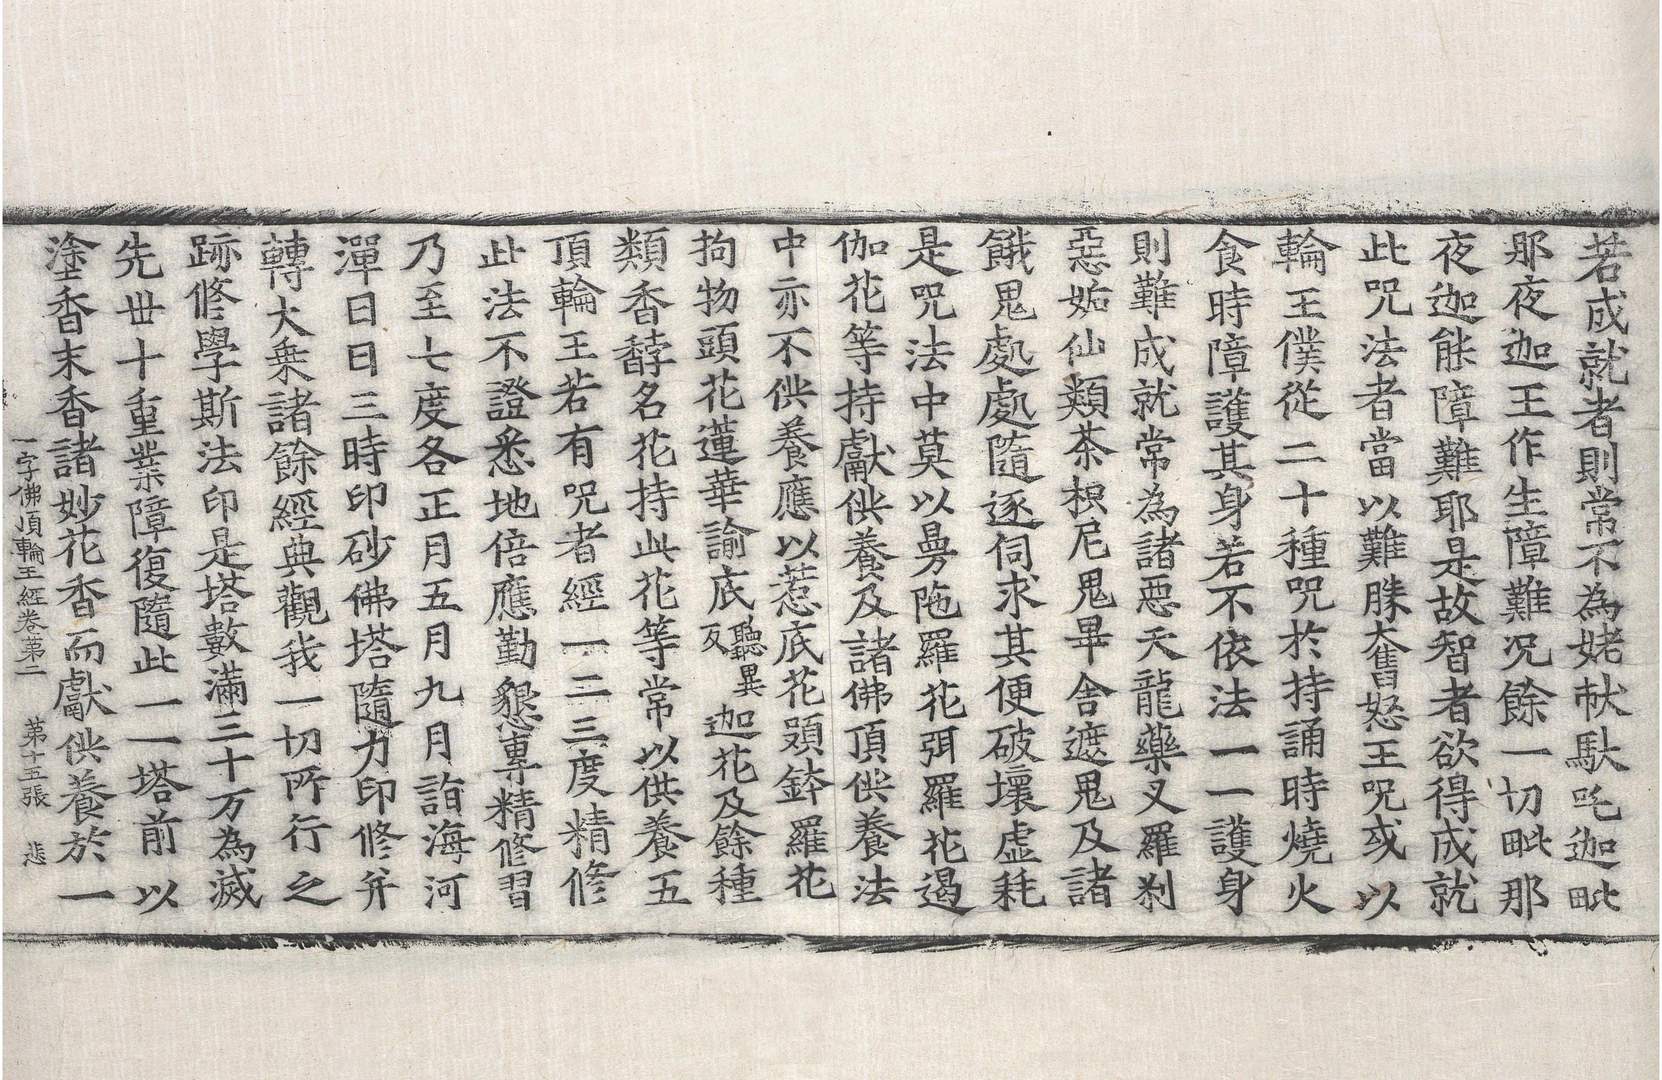 若成就者則常不為姥㹜馱吒迦毗
那夜迦王作生障難况餘一切毗那
夜迦能障難耶是故智者欲得成就
此咒法者當以難勝奮怒王咒或以
輪王僕從二十種咒於持誦時燒火
食時障護其身若不依法一一護身
則難成就常為諸惡天龍藥叉羅剎
惡妬仙類荼枳尼鬼畢舍遮鬼及諸
餓鬼處處隨逐伺求其便破壞虛耗
是咒法中莫以曼陁羅花弭羅花遏
伽花等持獻供養及諸佛頂供養法
中亦不供養應以惹底花頞鉢羅花
拘物頭花蓮華諭底聽異反迦花及餘種
類香馞名花持此花等常以供養五
頂輪王若有咒者經一二三度精修
此法不證悉地倍應勤懇專精修習
乃至七度各正月五月九月詣海河
潬日日三時印砂佛塔隨力印修并
轉大乘諸餘經典觀我一切所行之
跡修學斯法印是塔數滿三十万為滅
先世十重業障復隨此一一塔前以
塗香末香諸妙花香而獻供養於一
一字佛頂輪王經卷第二 第十五張 悲